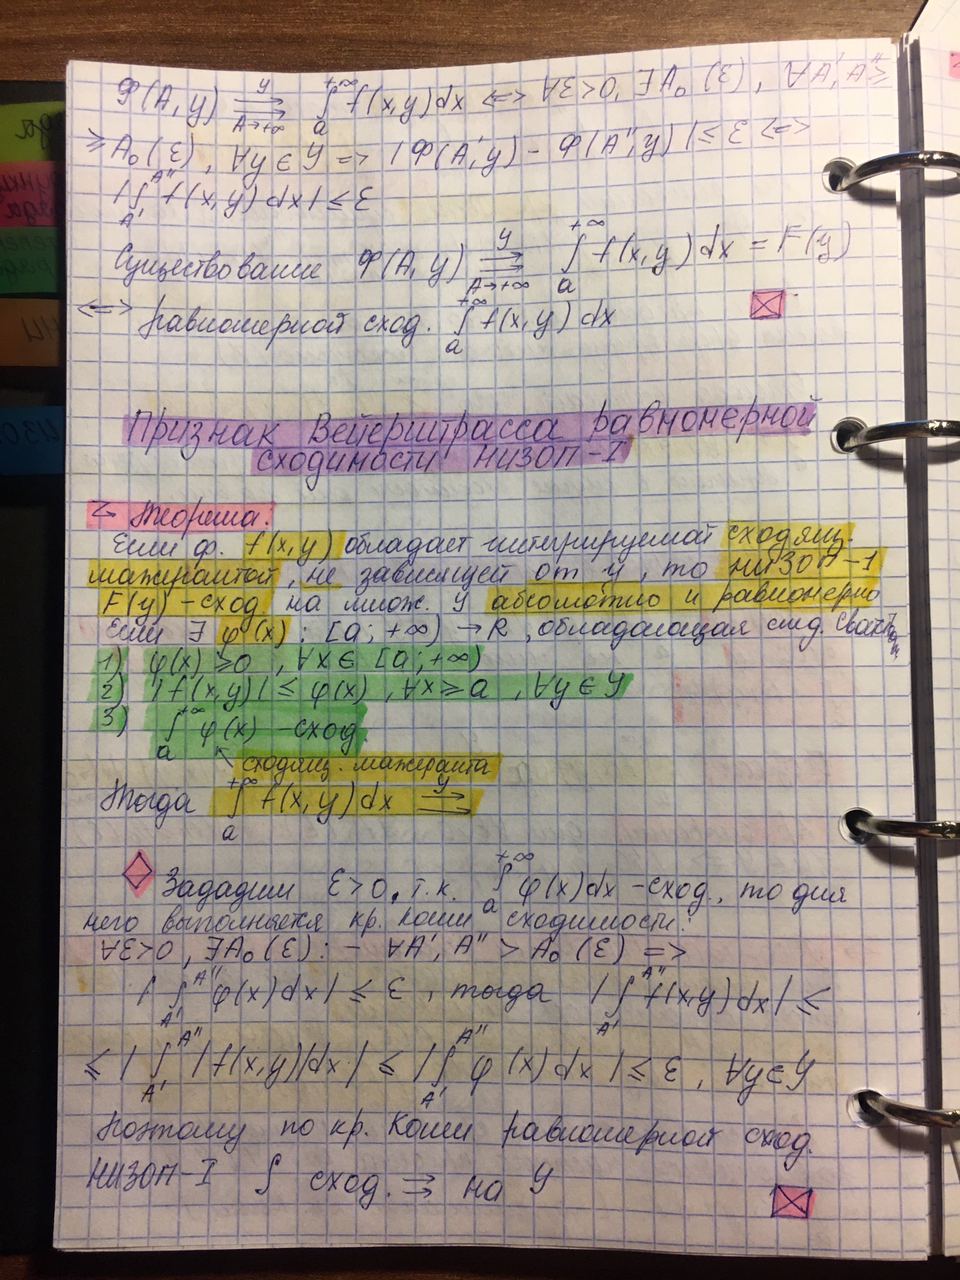 Ф(A,y) ⇉ʸ_{A→+∞} ∫ₐ^{+∞} f(x,y)dx <=> ∀ε>0, ∃A₀(ε), ∀A',A''≥
≥A₀(ε), ∀y∈Y => |Ф(A',y) - Ф(A'',y)|≤ε <=>
|∫_{A'}^{A''} f(x,y)dx|≤ε
Существование Ф(A,y) ⇉ʸ_{A→+∞} ∫ₐ^{+∞} f(x,y)dx = F(y)
<=> равномерной сход. ∫ₐ^{+∞} f(x,y)dx
Признак Вейерштрасса равномерной
сходимости НИЗОП-I
Теорема.
Если ф. f(x,y) обладает интегрируемой сходящ.
мажерантой, не зависящей от y, то НИЗОП-1
F(y) -сход на множ. Y абсолютно и равномерно
Если ∃ φ(x): [a;+∞)→R, обладающая след. свойствами
1) φ(x)≥0, ∀x∈[a;+∞)
2) |f(x,y)|≤φ(x), ∀x≥a, ∀y∈Y
3) ∫ₐ^{+∞} φ(x) -сход.
сходящ. мажеранта
Тогда ∫ₐ^{+∞} f(x,y)dx ⇉ʸ
Зададим ε>0, т.к. ∫ₐ^{+∞} φ(x)dx -сход., то для
него выполняется кр. Коши сходимости:
∀ε>0, ∃A₀(ε): - ∀A',A''>A₀(ε) =>
|∫_{A'}^{A''} φ(x)dx|≤ε, тогда |∫_{A'}^{A''} f(x,y)dx|≤
≤|∫_{A'}^{A''} |f(x,y)|dx|≤|∫_{A'}^{A''} φ(x)dx|≤ε, ∀y∈Y
Поэтому по кр. Коши равномерной сход.
НИЗОП-I ∫ сход. ⇉ на Y